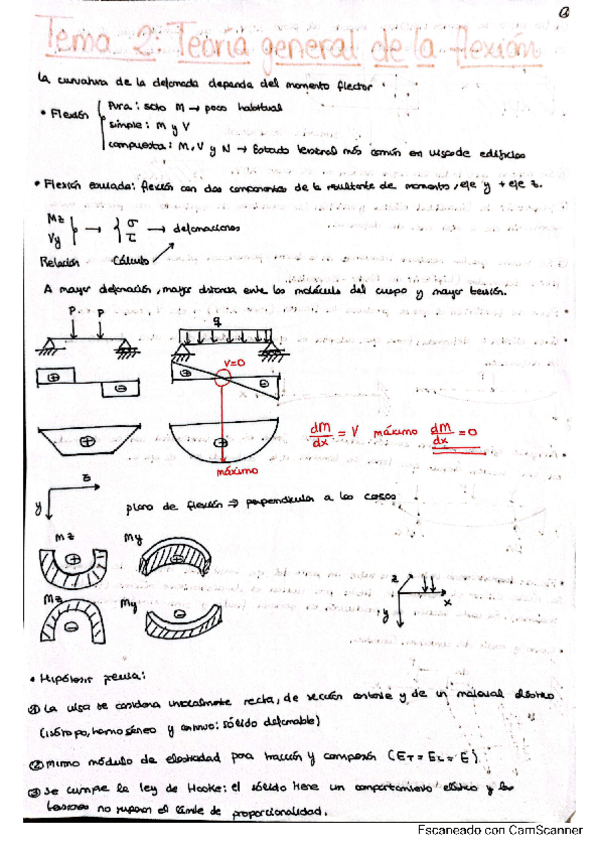 Tema 2: Teoría general de la flexión
La curvatura de la deformada depende del momento flector.
• Flexión
Pura: solo M → poco habitual
simple: M y V
compuesta: M, V y N → Estado tensional más común en vigas de edificios
• Flexión esviada: flexión con dos componentes de la resultante de momento, eje y + eje z.
Mz
Vy
→ { σ
τ → deformaciones
Relación Cálculo
A mayor deformación, mayor distancia entre las moléculas del cuerpo y mayor tensión.
P P
q
V=0
dM/dx = V máximo dM/dx = 0
máximo
z
y
plano de flexión ⇒ perpendicular a las cargas
Mz My
Mz My
z
x
y
• Hipótesis previa:
① La viga se considera inicialmente recta, de sección constante y de un material elástico
(isótropo, homogéneo y continuo: sólido deformable)
② Mismo módulo de elasticidad para tracción y compresión (ET = EC = E)
③ Se cumple la ley de Hooke: el sólido tiene un comportamiento elástico y las
tensiones no superan el límite de proporcionalidad.
Escaneado con CamScanner